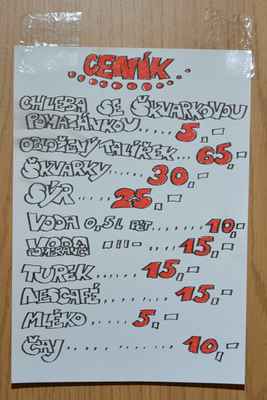 CENÍK
CHLEBA SE ŠKVARKOVOU
POMAZÁNKOU......5,-
OBLOŽENÝ TALÍŘEK...65,-
ŠKVARKY......30,-
SÝR......25,-
VODA 0,5L PET...10,-
VODA -III- ...15,-
TUREK....15,-
NESCAFÉ....15,-
MLÉKO.....5,-
ČAJ........10,-